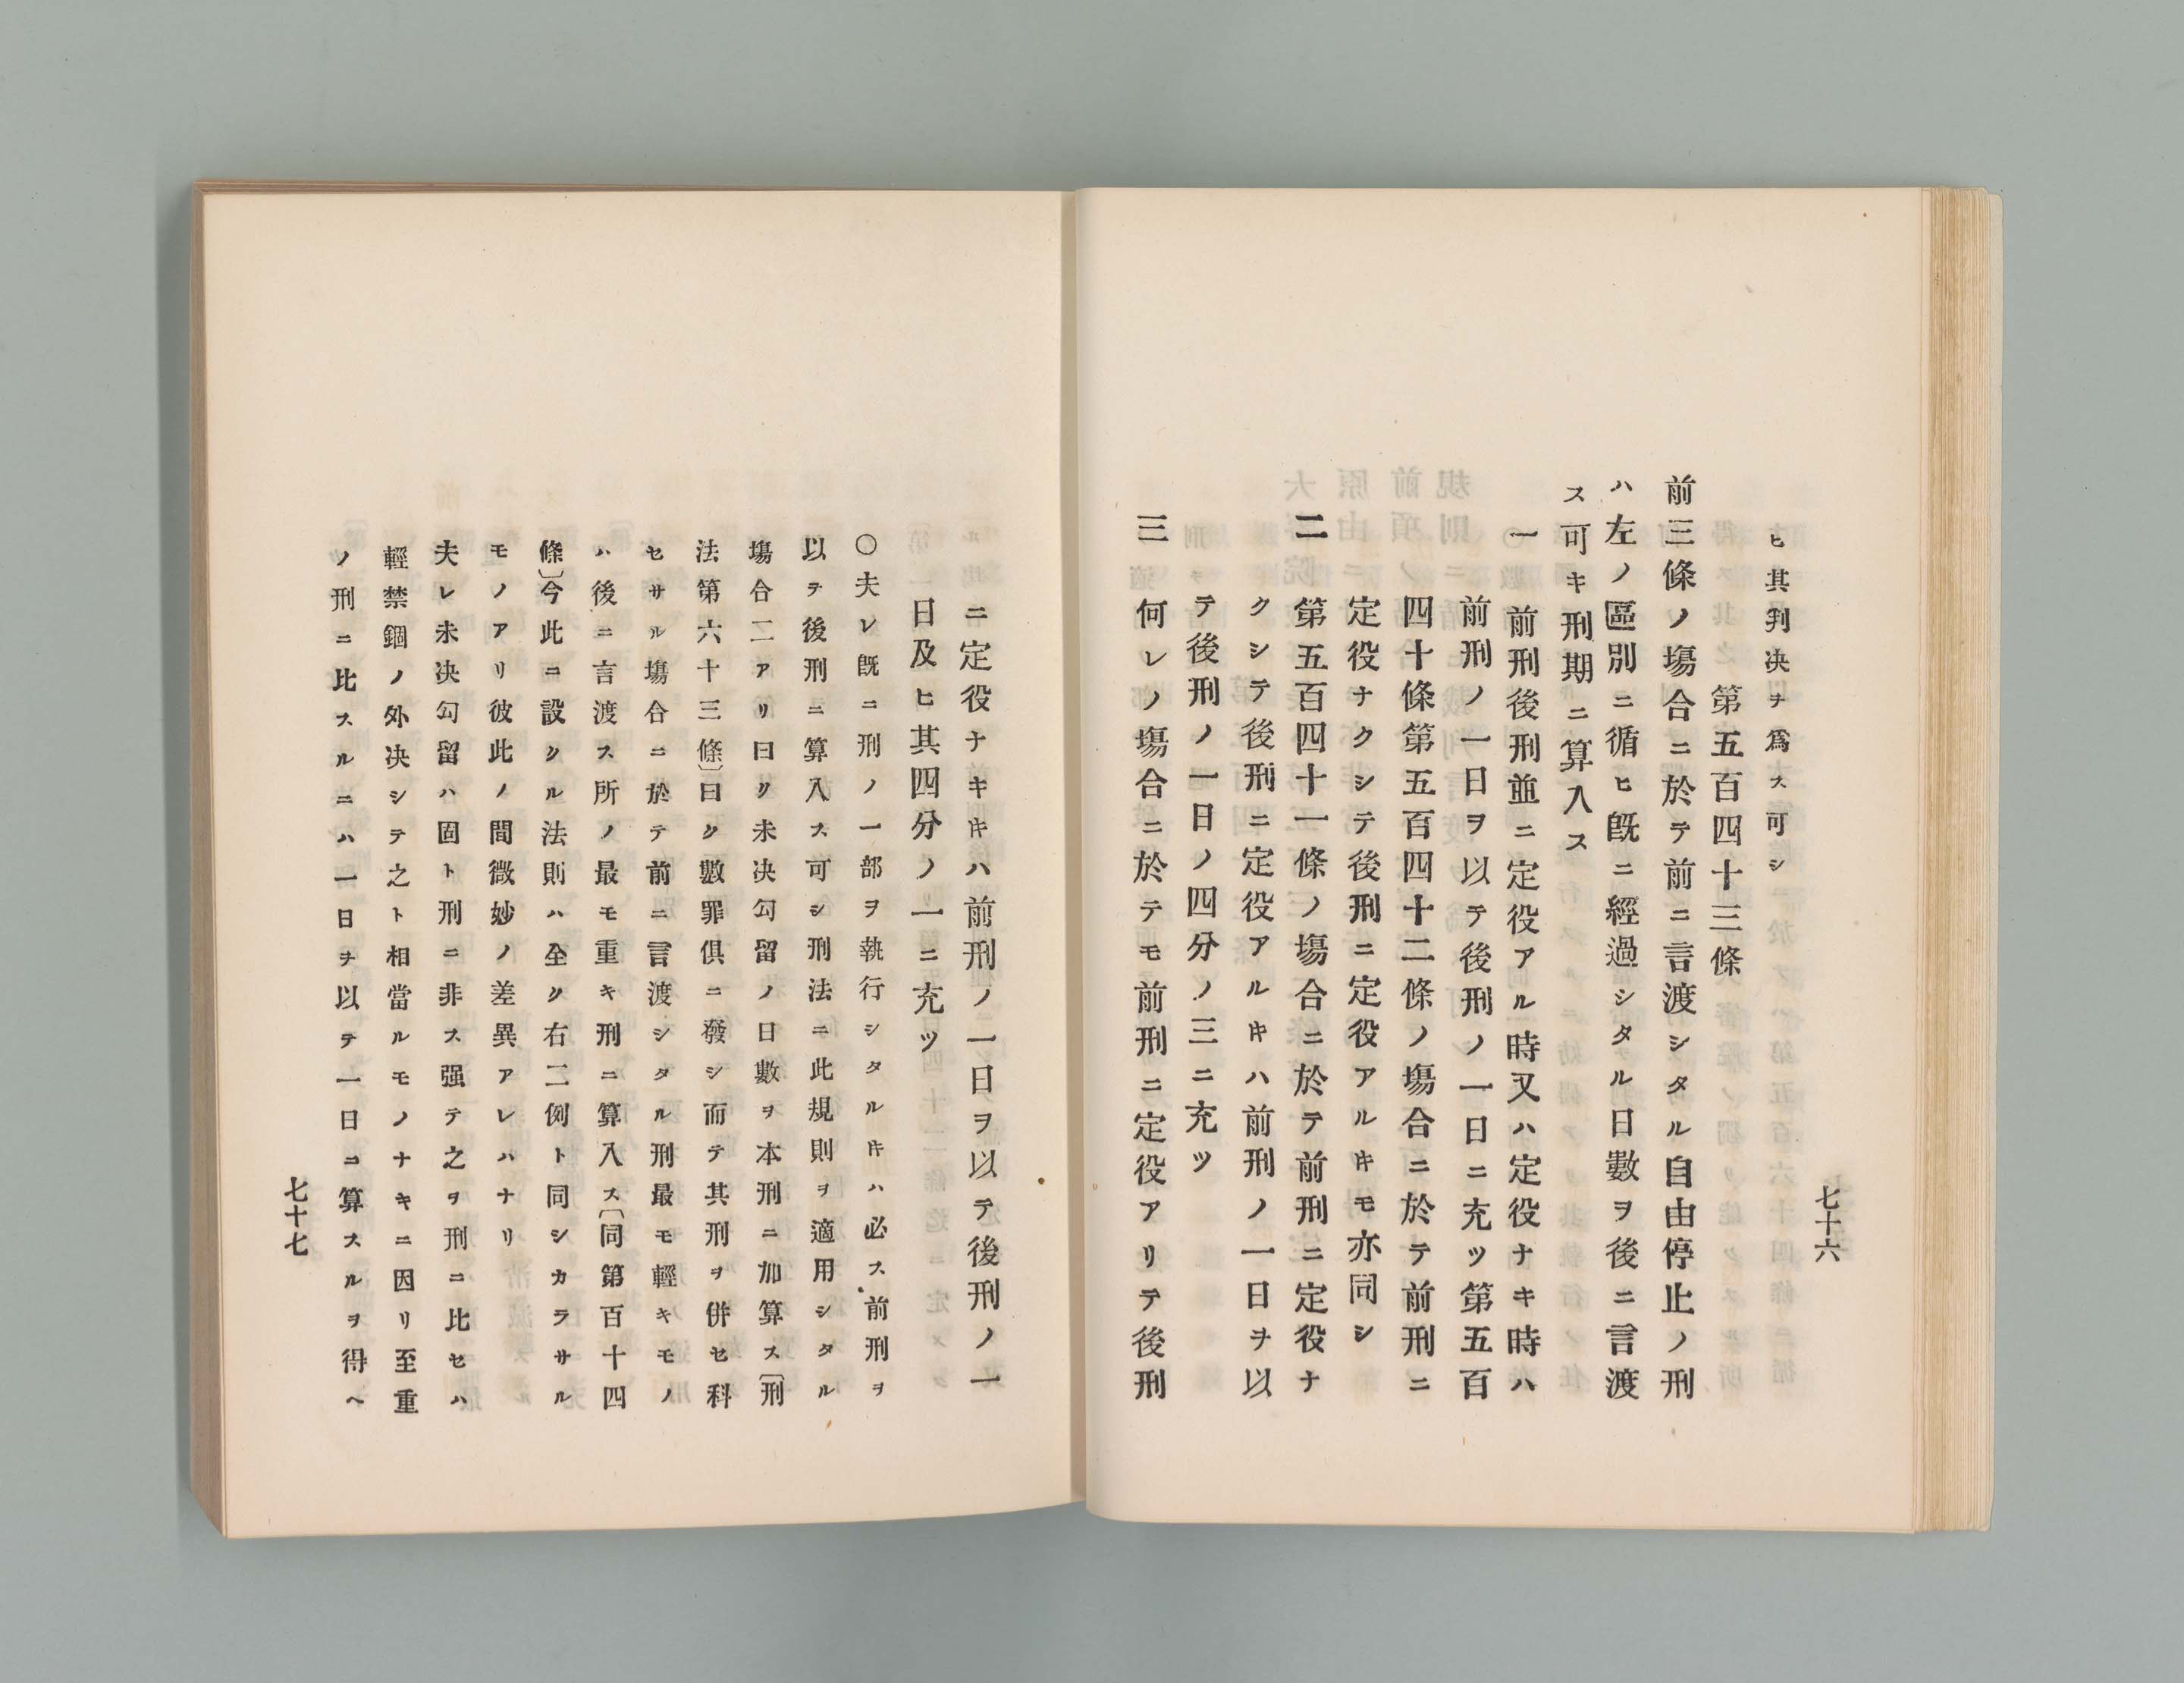 七十六
ヒ其判决ヲ爲ス可シ
第五百四十三條
前三條ノ塲合ニ於テ前ニ言渡シタル自由停止ノ刑
ハ左ノ區別ニ循ヒ既ニ經過シタル日數ヲ後ニ言渡
ス可キ刑期ニ算入ス
一 前刑後刑並ニ定役アル時又ハ定役ナキ時ハ
前刑ノ一日ヲ以テ後刑ノ一日ニ充ツ第五百
四十條第五百四十二條ノ塲合ニ於テ前刑ニ
定役ナクシテ後刑ニ定役アルキモ亦同シ
二 第五百四十一條ノ塲合ニ於テ前刑ニ定役ナ
クシテ後刑ニ定役アルキハ前刑ノ一日ヲ以
テ後刑ノ一日ノ四分ノ三ニ充ツ
三 何レノ塲合ニ於テモ前刑ニ定役アリテ後刑
ニ定役ナキキハ前刑ノ一日ヲ以テ後刑ノ一
日及ヒ其四分ノ一ニ充ツ
〇夫レ既ニ刑ノ一部ヲ執行シタルキハ必ス前刑ヲ
以テ後刑ニ算入ス可シ刑法ニ此規則ヲ適用シタル
塲合二アリ曰ク未决勾留ノ日數ヲ本刑ニ加算ス〔刑
法第六十三條〕曰ク數罪俱ニ發シ而テ其刑ヲ併セ科
セサル塲合ニ於テ前ニ言渡シタル刑最モ輕キモノ
ハ後ニ言渡ス所ノ最モ重キ刑ニ算入ス〔同第百十四
條〕今此ニ設クル法則ハ全ク右二例ト同シカラサル
モノアリ彼此ノ間微妙ノ差異アレハナリ
夫レ未决勾留ハ固ト刑ニ非ス强テ之ヲ刑ニ比セハ
輕禁錮ノ外决シテ之ト相當ルモノナキニ因リ至重
ノ刑ニ比スルニハ一日ヲ以テ一日ニ算スルヲ得ヘ
七十七